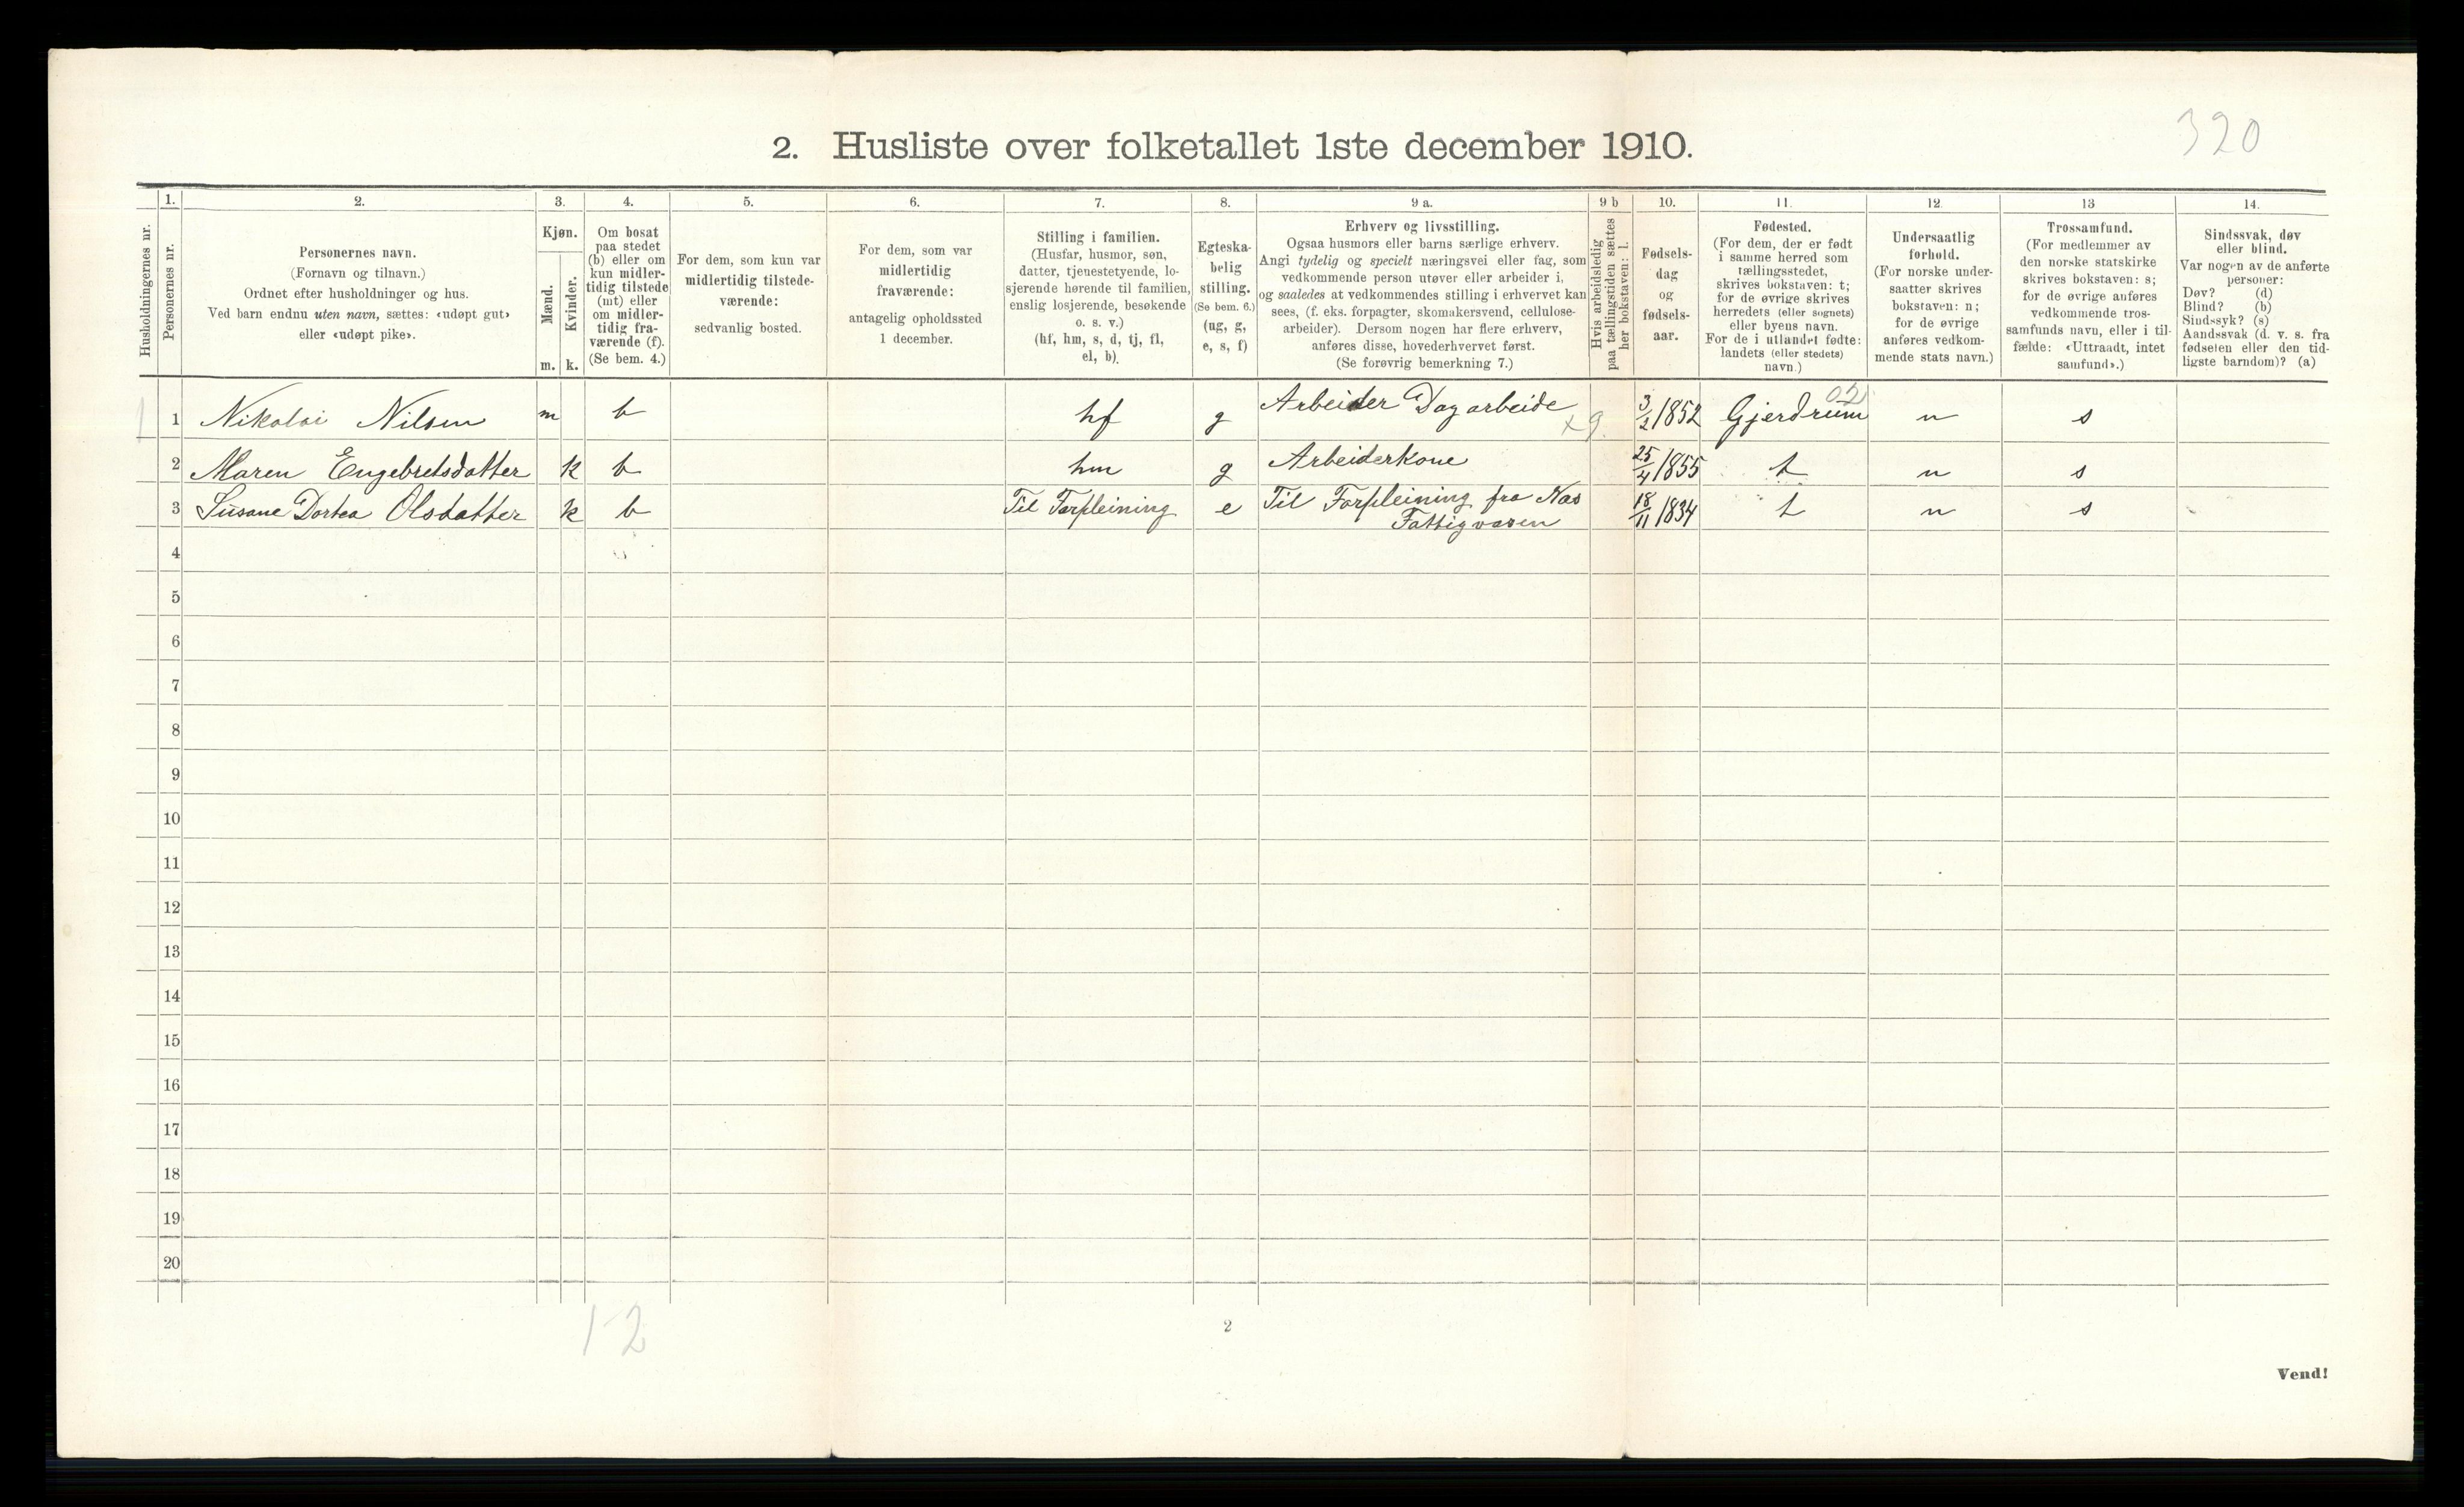 320
2. Husliste over folketallet 1ste december 1910.
Husholdningernes nr.
1.
Personernes nr.
2.
Personernes navn.
(Fornavn og tilnavn.)
Ordnet efter husholdninger og hus.
Ved barn endnu uten navn, sættes: «udøpt gut»
eller «udøpt pike».
3.
Kjøn.
Mænd.
Kvinder.
m.
k.
4.
Om bosat
paa stedet
(b) eller om
kun midler-
tidig tilstede
(mt) eller
om midler-
tidig fra-
værende (f).
(Se bem. 4.)
5.
For dem, som kun var
midlertidig tilstede-
værende:
sedvanlig bosted.
6.
For dem, som var
midlertidig
fraværende:
antagelig opholdssted
1 december.
7.
Stilling i familien.
(Husfar, husmor, søn,
datter, tjenestetyende, lo-
sjerende hørende til familien,
enslig losjerende, besøkende
o. s. v.)
(hf, hm, s, d, tj, fl,
el, b).
8.
Egteska-
belig
stilling.
(Se bem. 6.)
(ug, g,
e, s, f)
9 a.
Erhverv og livsstilling.
Ogsaa husmors eller barns særlige erhverv.
Angi tydelig og specielt næringsvei eller fag, som
vedkommende person utøver eller arbeider i,
og saaledes at vedkommendes stilling i erhvervet kan
sees, (f. eks. forpagter, skomakersvend, cellulose-
arbeider). Dersom nogen har flere erhverv,
anføres disse, hovederhvervet først.
(Se forøvrig bemerkning 7.)
9 b
Hvis arbeidsledig
paa tællingstiden sættes
her bokstaven: l.
10.
Fødsels-
dag
og
fødsels-
aar.
11.
Fødested.
(For dem, der er født
i samme herred som
tællingsstedet,
skrives bokstaven: t;
for de øvrige skrives
herredets (eller sognets)
eller byens navn.
For de i utlandet fødte:
landets (eller stedets)
navn.)
12.
Undersaatlig
forhold.
(For norske under-
saatter skrives
bokstaven: n;
for de øvrige
anføres vedkom-
mende stats navn.)
13
Trossamfund.
(For medlemmer av
den norske statskirke
skrives bokstaven: s;
for de øvrige anføres
vedkommende tros-
samfunds navn, eller i til-
fælde: «Uttraadt, intet
samfund».)
14.
Sindssvak, døv
eller blind.
Var nogen av de anførte
personer:
Døv? (d)
Blind? (b)
Sindssyk? (s)
Aandssvak (d. v. s. fra
fødselen eller den tid-
ligste barndom)? (a)
1 1 Nikolai Nilsen m b hf g Arbeider Dagarbeide xg. 3/2 1852 Gjerdrum 02 n s
2 Maren Engebretsdatter k b hm g Arbeiderkone 25/4 1855 t n s
3 Susane Dortea Olsdatter k b Til Forpleining e Til Forpleining fra Næs Fattigvæsen 18/11 1834 t n s
4
5
6
7
8
9
10
11
12
13
14
15
16
17
18
19
20
1-2
2
Vend!